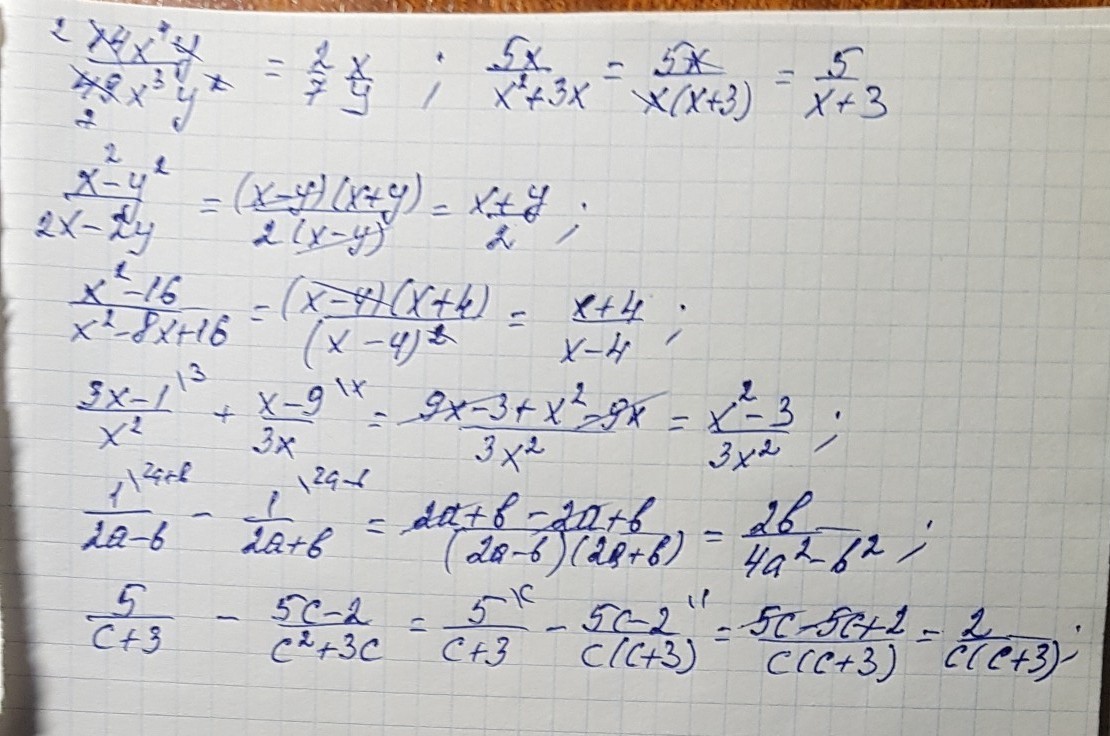 14x⁴y / 49x³y² = 2/7 x/y ; 5x / x²+3x = 5x / x(x+3) = 5 / x+3
x²-y² / 2x-2y = (x-y)(x+y) / 2(x-y) = x+y / 2 ;
x²-16 / x²-8x+16 = (x-4)(x+4) / (x-4)² = x+4 / x-4 ;
3x-1 \3 / x² + x-9 \x / 3x = 9x-3+x²-9x / 3x² = x²-3 / 3x² ;
1 \2a+b / 2a-b - 1 \2a-b / 2a+b = 2a+b-2a+b / (2a-b)(2a+b) = 2b / 4a²-b² ;
5 / c+3 - 5c-2 / c²+3c = 5 \c / c+3 - 5c-2 \1 / c(c+3) = 5c-5c+2 / c(c+3) = 2 / c(c+3) ;